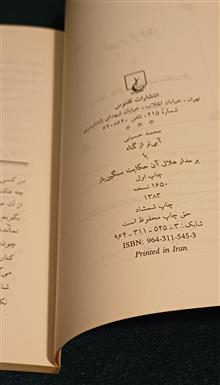 انتشارات ققنوس
تهران، خیابان انقلاب، خیابان شهدای ژاندارمری
شمارهٔ ۲۱۵، تلفن ۶۴۰۸۶۴۰
* * *
محمد حسینی
آبی‌تر از گناه
یا
بر مدار هلال آن حکایت سنگین‌بار
چاپ اول
۱۶۵۰ نسخه
۱۳۸۳
چاپ شمشاد
حق چاپ محفوظ است
شابک: ۳-۵۴۵-۳۱۱-۹۶۴
ISBN: 964-311-545-3
Printed in Iran
من کسی